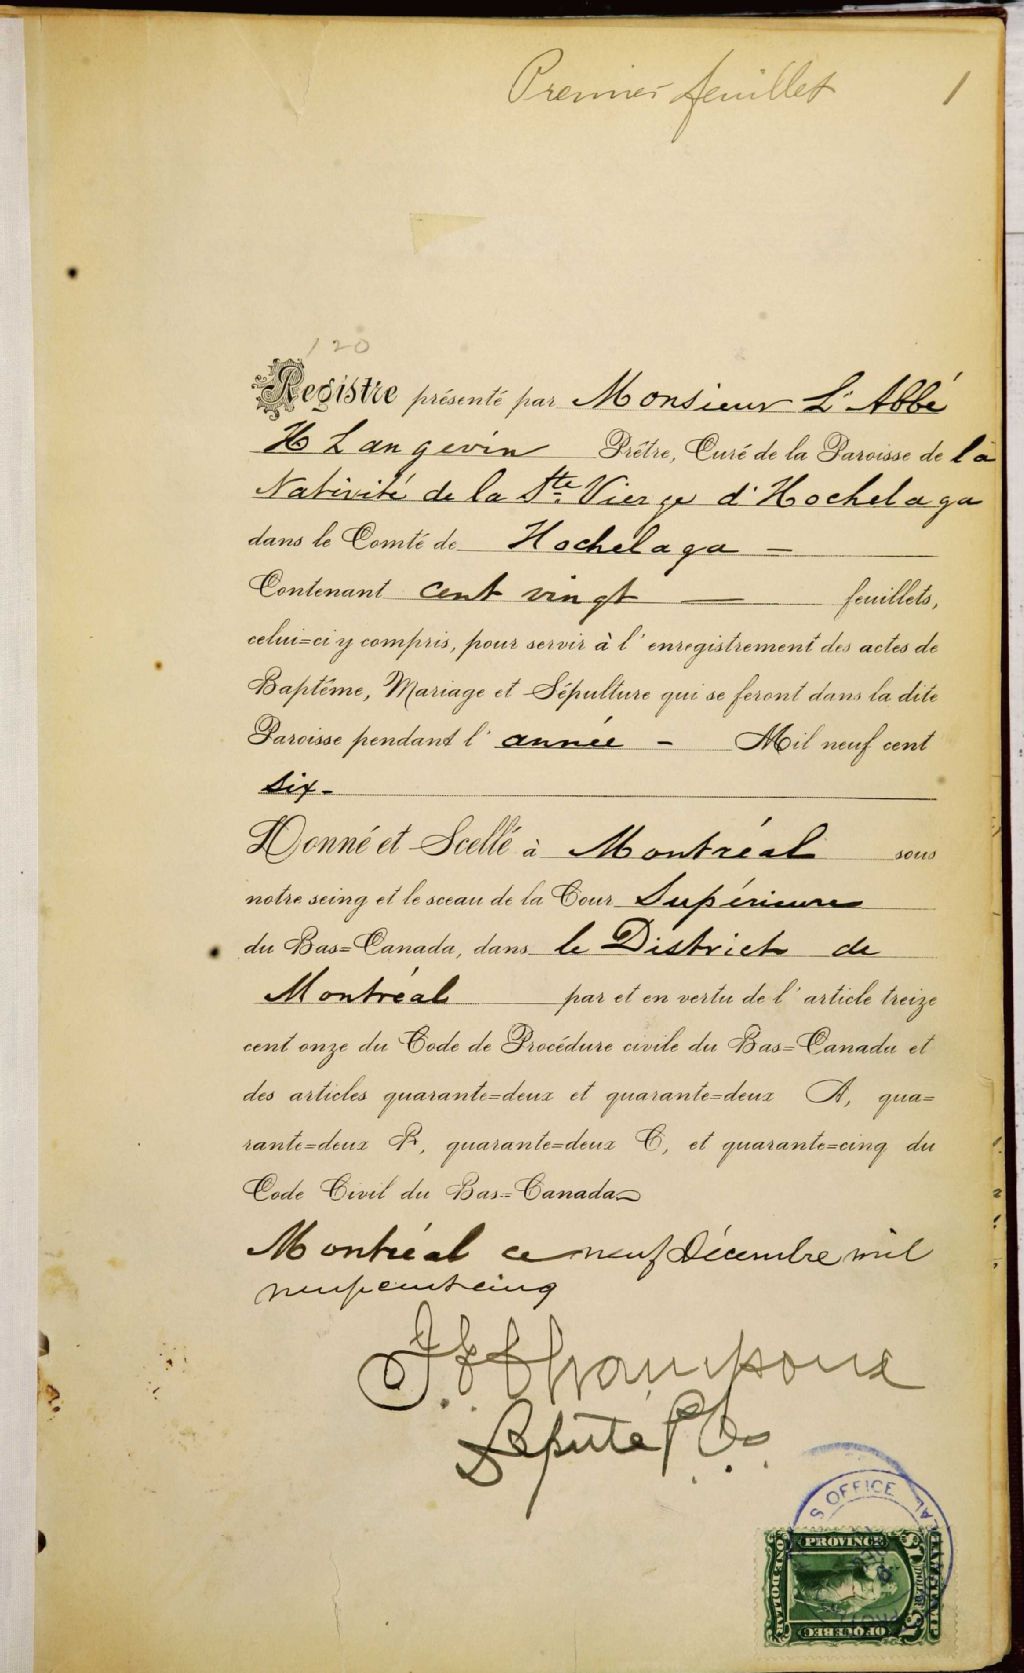 Premier feuillet 1
120
Registre présenté par Monsieur L'Abbé
H Langevin Prêtre, Curé de la Paroisse de la
Nativité de la Ste Vierge d'Hochelaga
dans le Comté de Hochelaga —
Contenant cent vingt — feuillets,
celui=ci y compris, pour servir à l'enregistrement des actes de
Baptême, Mariage et Sépulture qui se feront dans la dite
Paroisse pendant l'année - Mil neuf cent
six-
Donné et Scellé à Montréal sous
notre seing et le sceau de la Cour Supérieure
du Bas=Canada, dans le District de
Montréal par et en vertu de l'article treize
cent onze du Code de Procédure civile du Bas=Canada et
des articles quarante=deux et quarante=deux A, qua=
rante=deux B, quarante=deux C, et quarante=cinq du
Code Civil du Bas=Canada
Montréal ce neuf Décembre mil
neuf cent cinq
Député P
S OFFICE
PROVINCE
ONE DOLLAR
DOLLAR
OF QUEBEC